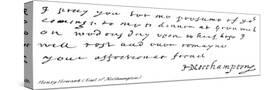 I pray you let me presume of yor
coming to me to dinner at
on wodnesday upon
will rest and ever remayne
your affectionat frend
HNorthampton
Henry Howard (Earl of Northampton)